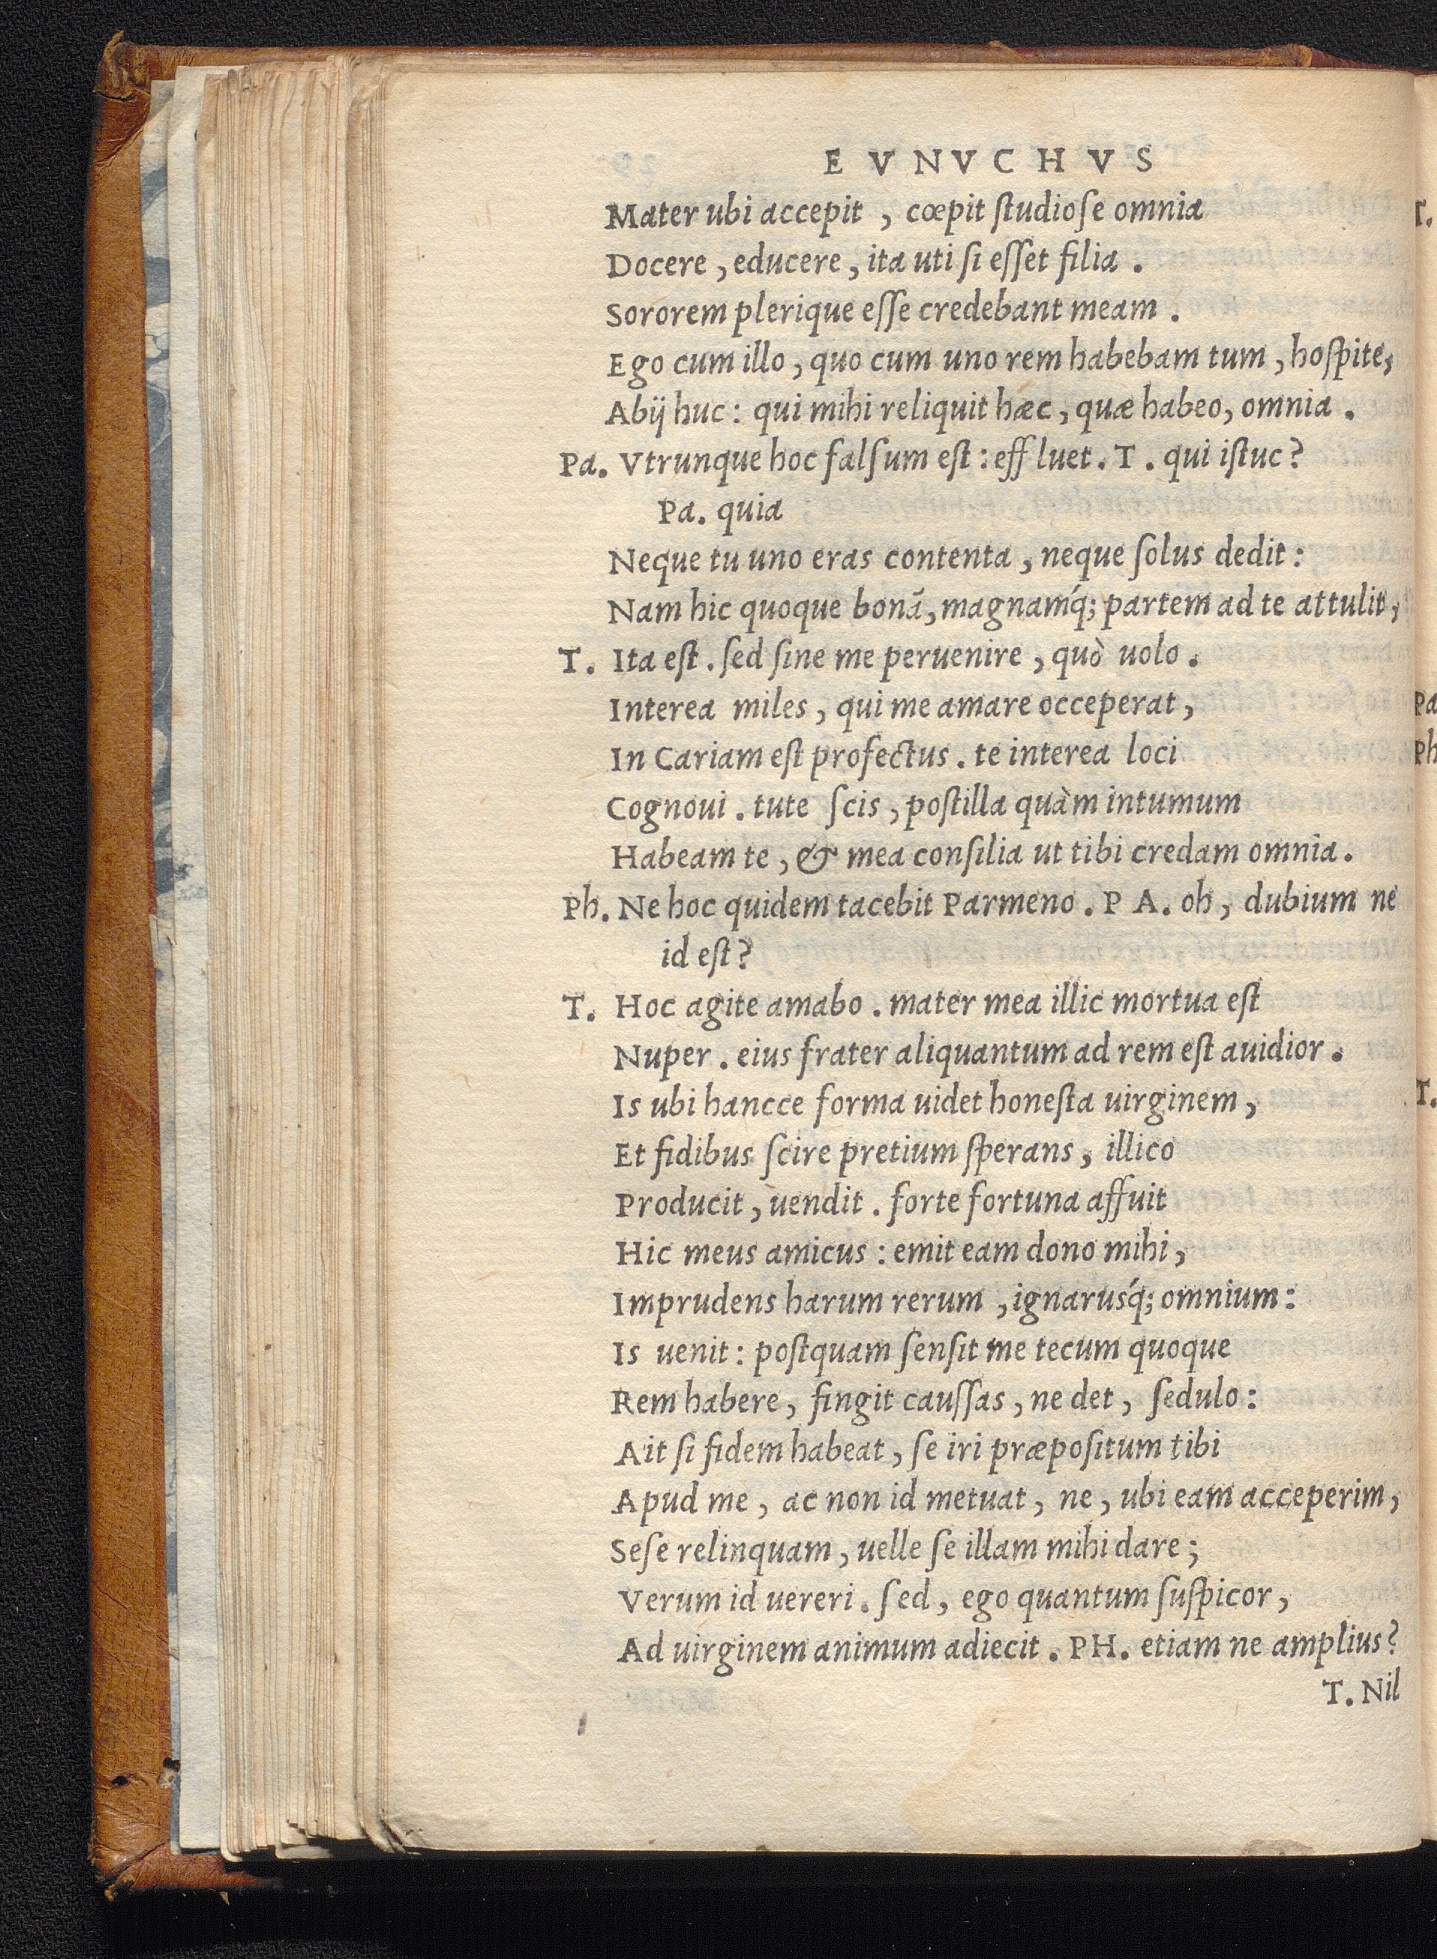 EVNVCHVS
Mater ubi accepit , cœpit ſtudioſe omnia
Docere , educere , ita uti ſi eſſet filia .
Sororem plerique eſſe credebant meam .
Ego cum illo , quo cum uno rem habebam tum , hoſpite,
Abij huc : qui mihi reliquit hæc , quæ habeo, omnia .
Pa. Vtrunque hoc falſum eſt : effluet . T . qui iſtuc?
Pa. quia
Neque tu uno eras contenta , neque ſolus dedit :
Nam hic quoque bonā, magnamq́; partem ad te attulit,
T. Ita eſt . ſed ſine me peruenire , quò uolo .
Interea miles , qui me amare occeperat ,
In Cariam eſt profectus . te interea loci
Cognoui . tute ſcis , poſtilla quàm intumum
Habeam te , & mea conſilia ut tibi credam omnia .
Ph. Ne hoc quidem tacebit Parmeno . PA. oh , dubium ne
id eſt?
T. Hoc agite amabo . mater mea illic mortua eſt
Nuper . eius frater aliquantum ad rem eſt auidior .
Is ubi hancce forma uidet honeſta uirginem ,
Et fidibus ſcire pretium ſperans , illico
Producit , uendit . forte fortuna affuit
Hic meus amicus : emit eam dono mihi ,
Imprudens harum rerum , ignarusq́; omnium :
Is uenit : poſtquam ſenſit me tecum quoque
Rem habere , fingit cauſſas , ne det , ſedulo :
Ait ſi fidem habeat , ſe iri præpoſitum tibi
Apud me , ac non id metuat , ne , ubi eam acceperim ,
Seſe relinquam , uelle ſe illam mihi dare ;
Verum id uereri . ſed , ego quantum ſuſpicor ,
Ad uirginem animum adiecit . PH. etiam ne amplius?
T. Nil
T.
Pa
Ph
T.